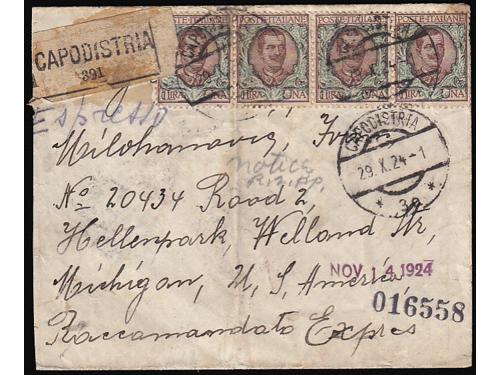 CAPODISTRIA
391
POSTE·ITALIANE POSTE·ITALIANE POSTE·ITALIANE POSTE·ITALIANE
1 LIRA UNA 1 LIRA UNA 1 LIRA UNA 1 LIRA UNA
Espresso
CAPODISTRIA
29.X.24-1
* 3a *
Milohanovic, Ivo
notice
No 20434 Road 2,
Hellenpark, Welland Str,
Michigan, U, S, America,
NOV 14 1924
016558
Raccamandato Expres